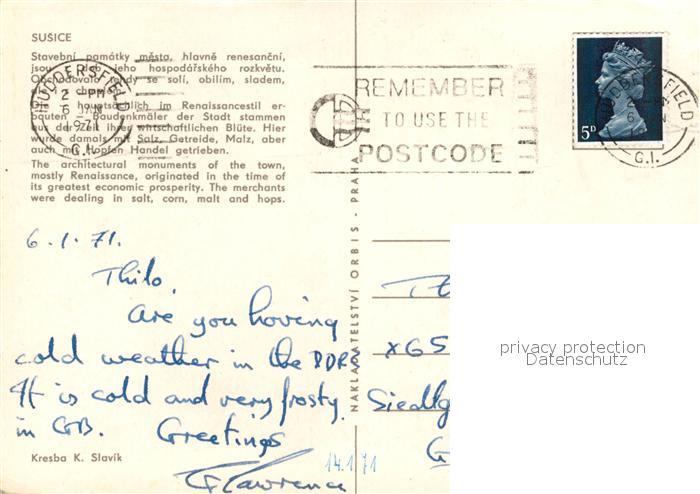 SUŠICE
Stavební památky města, hlavně renesanční,
jsou z dob jeho hospodářského rozkvětu.
Obchodovalo tehdy se solí, obilím, sladem,
chmelem
Die hauptsächlich im Renaissancestil er-
bauten Baudenkmäler der Stadt stammen
aus der Zeit ihrer wirtschaftlichen Blüte. Hier
wurde damals mit Salz, Getreide, Malz, aber
auch mit Hopfen Handel getrieben.
The architectural monuments of the town,
mostly Renaissance, originated in the time of
its greatest economic prosperity. The merchants
were dealing in salt, corn, malt and hops.
HUDDERSFIELD
2 - PM
6 JAN
1971
G.I.
REMEMBER
TO USE THE
POSTCODE
5D
HUDDERSFIELD
G.I.
NAKLADATELSTVÍ ORBIS - PRAHA
6.1.71.
Thilo,
Are you having
cold weather in the DDR?
It is cold and very frosty
in GB. Greetings
G Lawrence
x65
14.1.71
Kresba K. Slavík
privacy protection
Datenschutz